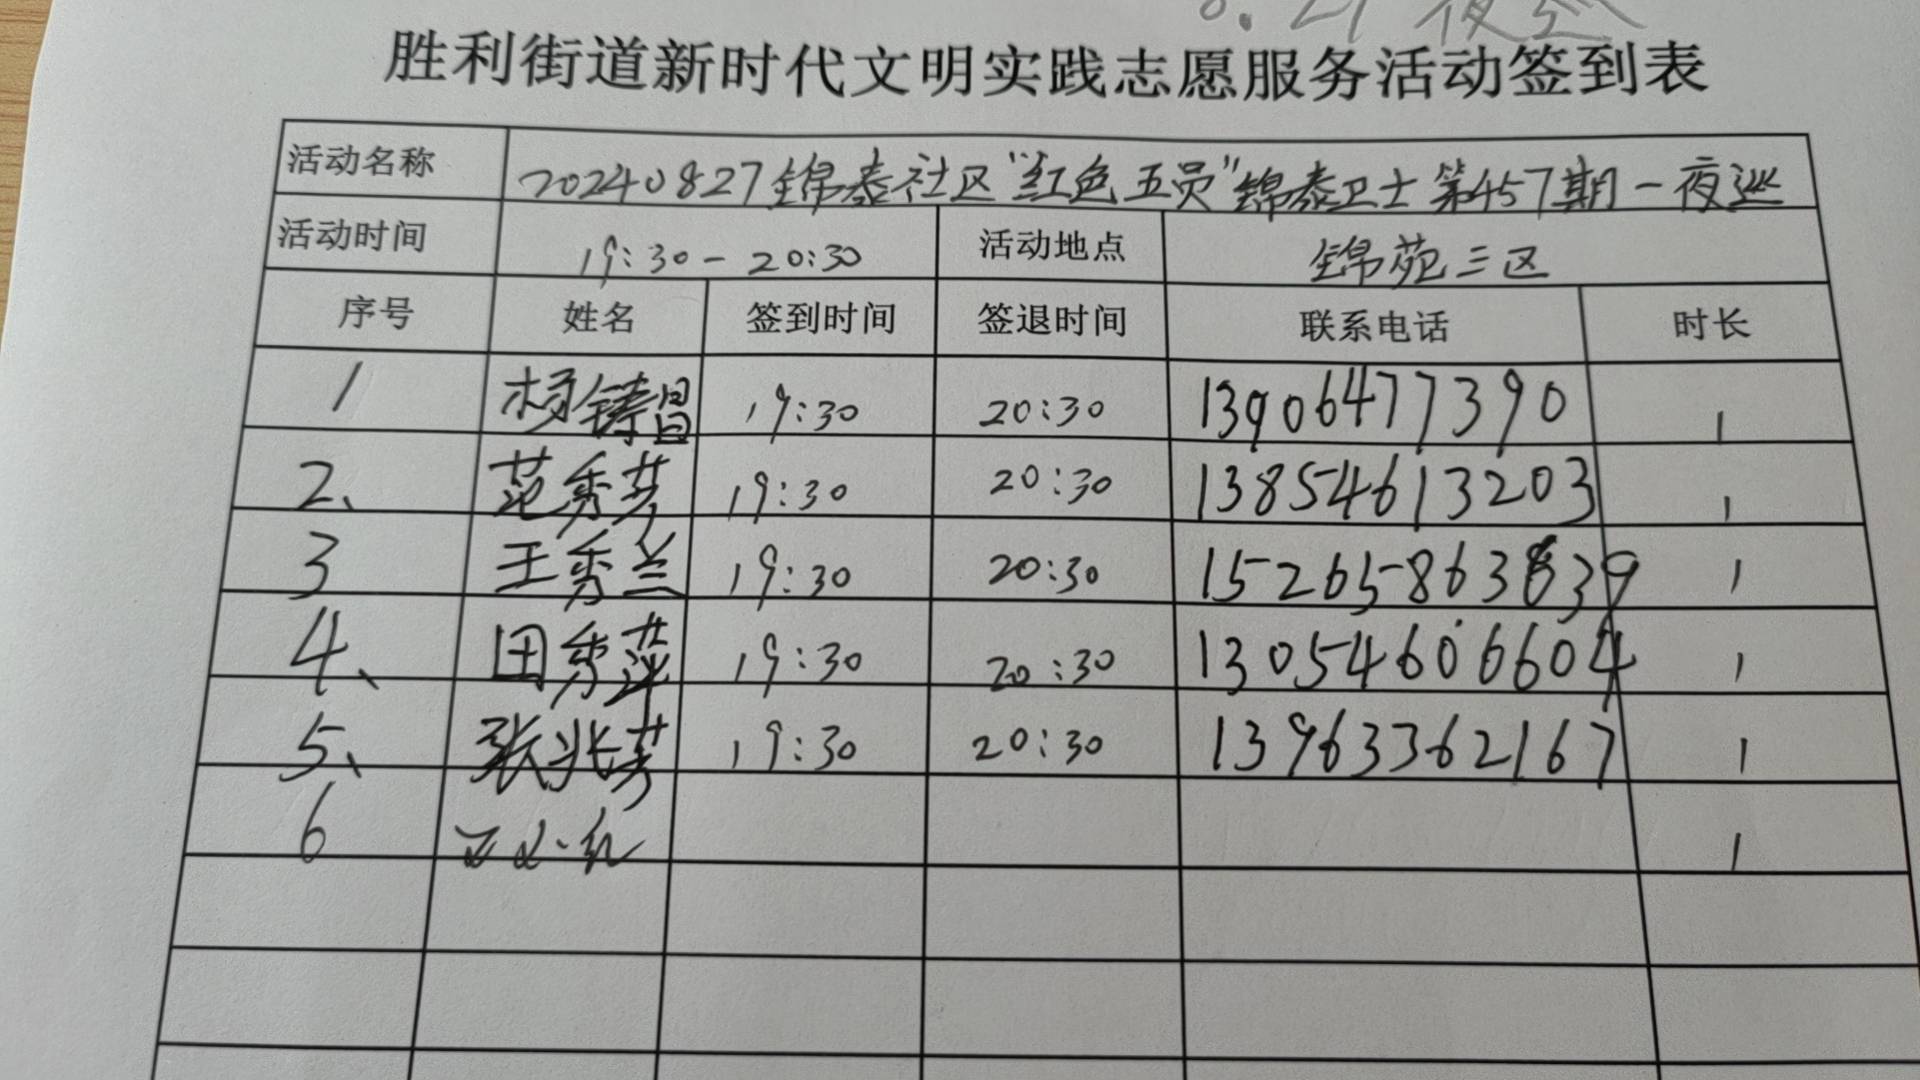 胜利街道新时代文明实践志愿服务活动签到表
活动名称 20240827锦泰社区"红色五员"锦泰卫士第457期一夜巡
活动时间 19:30-20:30 活动地点 锦苑三区
序号 姓名 签到时间 签退时间 联系电话 时长
1 杨铸昌 19:30 20:30 13906477390 1
2、 范秀芳 19:30 20:30 13854613203 1
3 王秀兰 19:30 20:30 15265863839 1
4、 田秀萍 19:30 20:30 13054606604 1
5、 张兆芳 19:30 20:30 13963362167 1
6 1